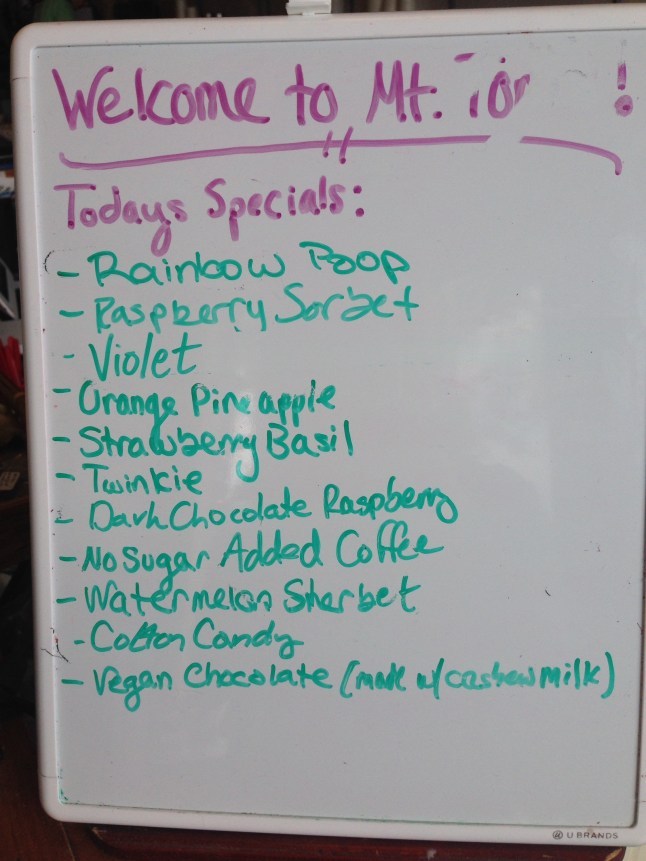 Welcome to Mt. !
Todays Specials:
- Rainbow Poop
- Raspberry Sorbet
- Violet
- Orange Pineapple
- Strawberry Basil
- Twinkie
- Dark Chocolate Raspberry
- No Sugar Added Coffee
- Watermelon Sherbet
- Cotton Candy
- Vegan Chocolate (made w/ cashew milk)
U BRANDS